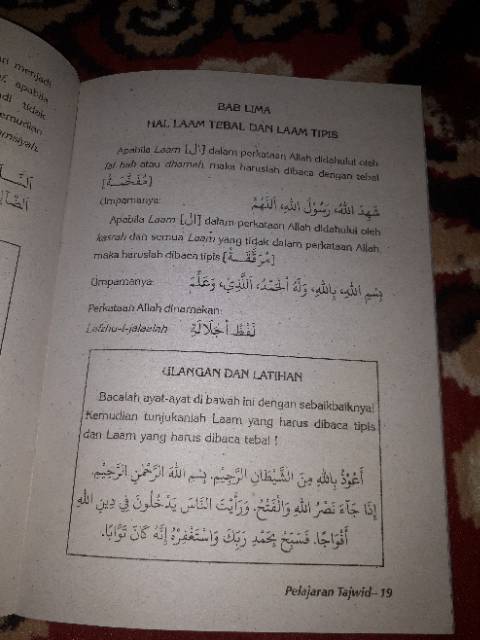 ri menjadi
apabila
di tidak
emudian
amsiyah.
BAB LIMA
HAL LAAM TEBAL DAN LAAM TIPIS
Apabila Laam [ال] dalam perkataan Allah didahului oleh
fat-hah atau dhamah, maka haruslah dibaca dengan tebal
[مُفَخَّمَةْ]
Umpamanya: شَهِدَ اللهُ، رَسُوْلُ اللهِ، اَللّٰهُمَّ
Apabila Laam [ال] dalam perkataan Allah didahului oleh
kasrah dan semua Laam yang tidak dalam perkataan Allah,
maka haruslah dibaca tipis [مُرَقَّقَـةْ]
Umpamanya: بِسْمِ اللهِ، بِاللهِ، وَلَهُ الْحَمْدُ، اَلَّذِيْ، وَعَلَّمَ
Perkataan Allah dinamakan:
Lafzhu-l-jalaalah لَفْظُ اْجَلَالَةِ
ULANGAN DAN LATIHAN
Bacalah ayat-ayat di bawah ini dengan sebaikbaiknya!
Kemudian tunjukanlah Laam yang harus dibaca tipis
dan Laam yang harus dibaca tebal !
أَعُوْذُ بِاللهِ مِنَ الشَّيْطَانِ الرَّجِيْمِ. بِسْمِ اللهِ الرَّحْمٰنِ الرَّحِيْمِ.
إِذَا جَآءَ نَصْرُ اللهِ وَالْفَتْحُ. وَرَأَيْتَ النَّاسَ يَدْخُلُونَ فِي دِينِ اللهِ
أَفْوَاجًا. فَسَبِّحْ بِحَمْدِ رَبِّكَ وَاسْتَغْفِرْهُ إِنَّهُ كَانَ تَوَّابًا.
Pelajaran Tajwid–19